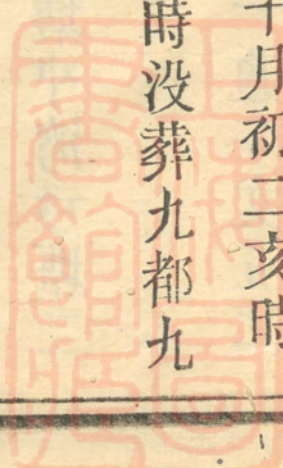 十月初二亥時
時没葬九都九